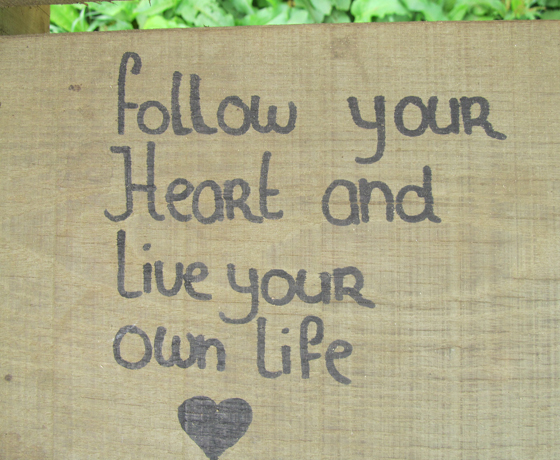 follow your
Heart and
Live your
own life